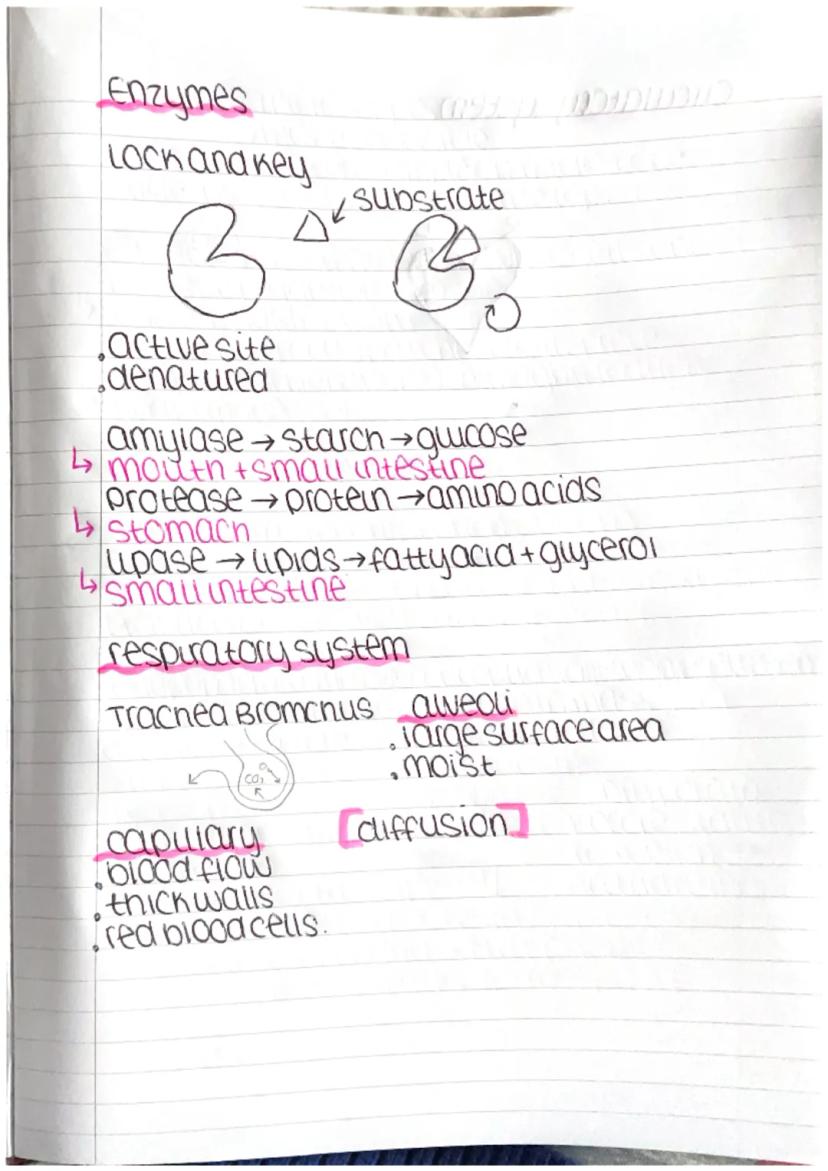 Enzymes
Lock and key
substrate
.active site
.denatured
amylase → starch → glucose
↳ mouth + small intestine
protease → protein → amino acids
↳ stomach
lipase → lipids → fatty acid + glycerol
↳ small intestine
respiratory system
Trachea Bromchus alveoli
.large surface area
.moist
CO₂ O₂
capillary [diffusion]
.blood flow
.thick walls
.red blood cells.